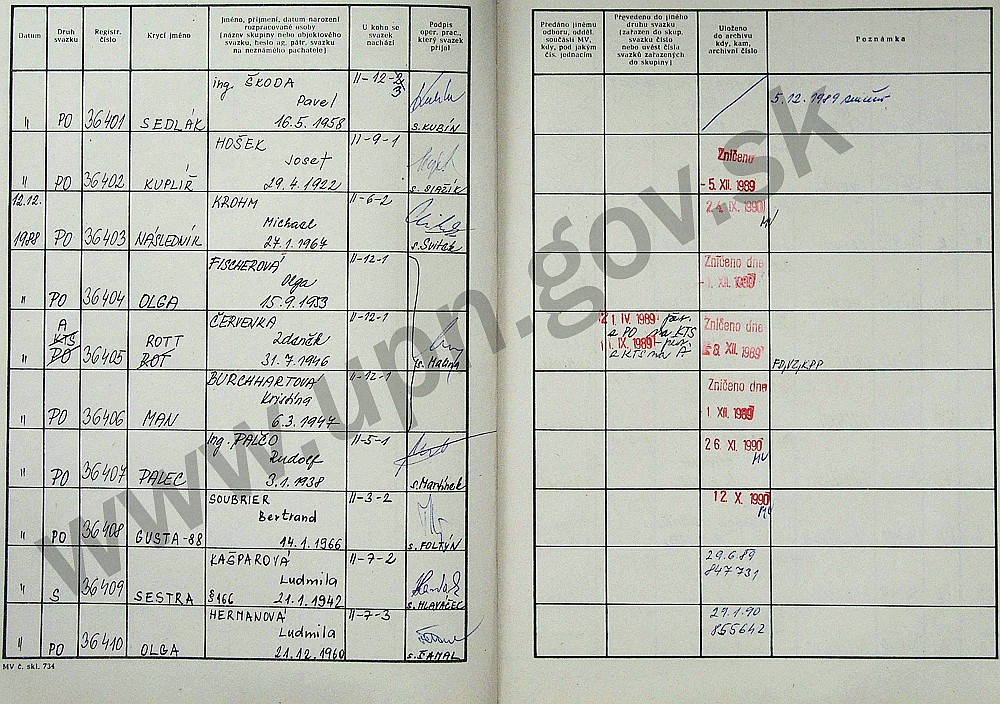 Datum
Druh
svazku
Registr.
číslo
Krycí jméno
Jméno, příjmení, datum narození
rozpracované osoby
(název skupiny nebo objektového
svazku, heslo ag. pátr. svazku
na neznámého pachatele)
U koho se
svazek
nachází
Podpis
oper. prac.,
který svazek
přijal
Předáno jinému
odboru, odděl.
součásti MV,
kdy, pod jakým
čís. jednacím
Převedeno do jiného
druhu svazku
(zařazen do skup.
svazku číslo
nebo uvést čísla
svazků zařazených
do skupiny)
Uloženo
do archivu
kdy, kam,
archivní číslo
Poznámka
ing. ŠKODA II-12-2
3
Pavel
" PO 36401 SEDLÁK 16.5.1958 s. KUBÍN
5.12.1989
HOŠEK II-9-1
Josef
" PO 36402 KUPLÍŘ 29.4.1922
Zničeno
- 5. XII. 1989
12.12. KROHM II-6-2
Michael
1988 PO 36403 NÁSLEDNÍK 27.1.1967 s. Sviták
24. IX. 1990
MV
FISCHEROVÁ II-12-1
Olga
" PO 36404 OLGA 15.9.1953
Zničeno dne
- 1. XII. 1989
A ČERVENKA II-12-1
KTS ROTT Zdeněk
" PO 36405 ROT 31.7.1946 s. Malina
1. IV. 1989
z PO na KTS
1. IX. 1989
z KTS na A
Zničeno dne
8. XII. 1989
FO, VZ, KPP
BURCHHARTOVÁ II-12-1
Kristina
" PO 36406 MAN 6.3.1947
Zničeno dne
- 1. XII. 1989
Ing. PALČO II-5-1
Rudolf
" PO 36407 PALEC 3.1.1938 s. Martínek
26. XI. 1990
MV
SOUBRIER II-3-2
Bertrand
" PO 36408 GUSTA-88 14.1.1966 s. FOLTÝN
12. X. 1990
MV
KAŠPAROVÁ II-7-2
Ludmila
" S 36409 SESTRA §166 21.1.1942 s. HLAVÁČEK
29.6.89
847731
HERMANOVÁ II-7-3
Ludmila
" PO 36410 OLGA 21.12.1960 s. ŠAMAL
29.1.90
855642
MV č. skl. 734
www.upn.gov.sk